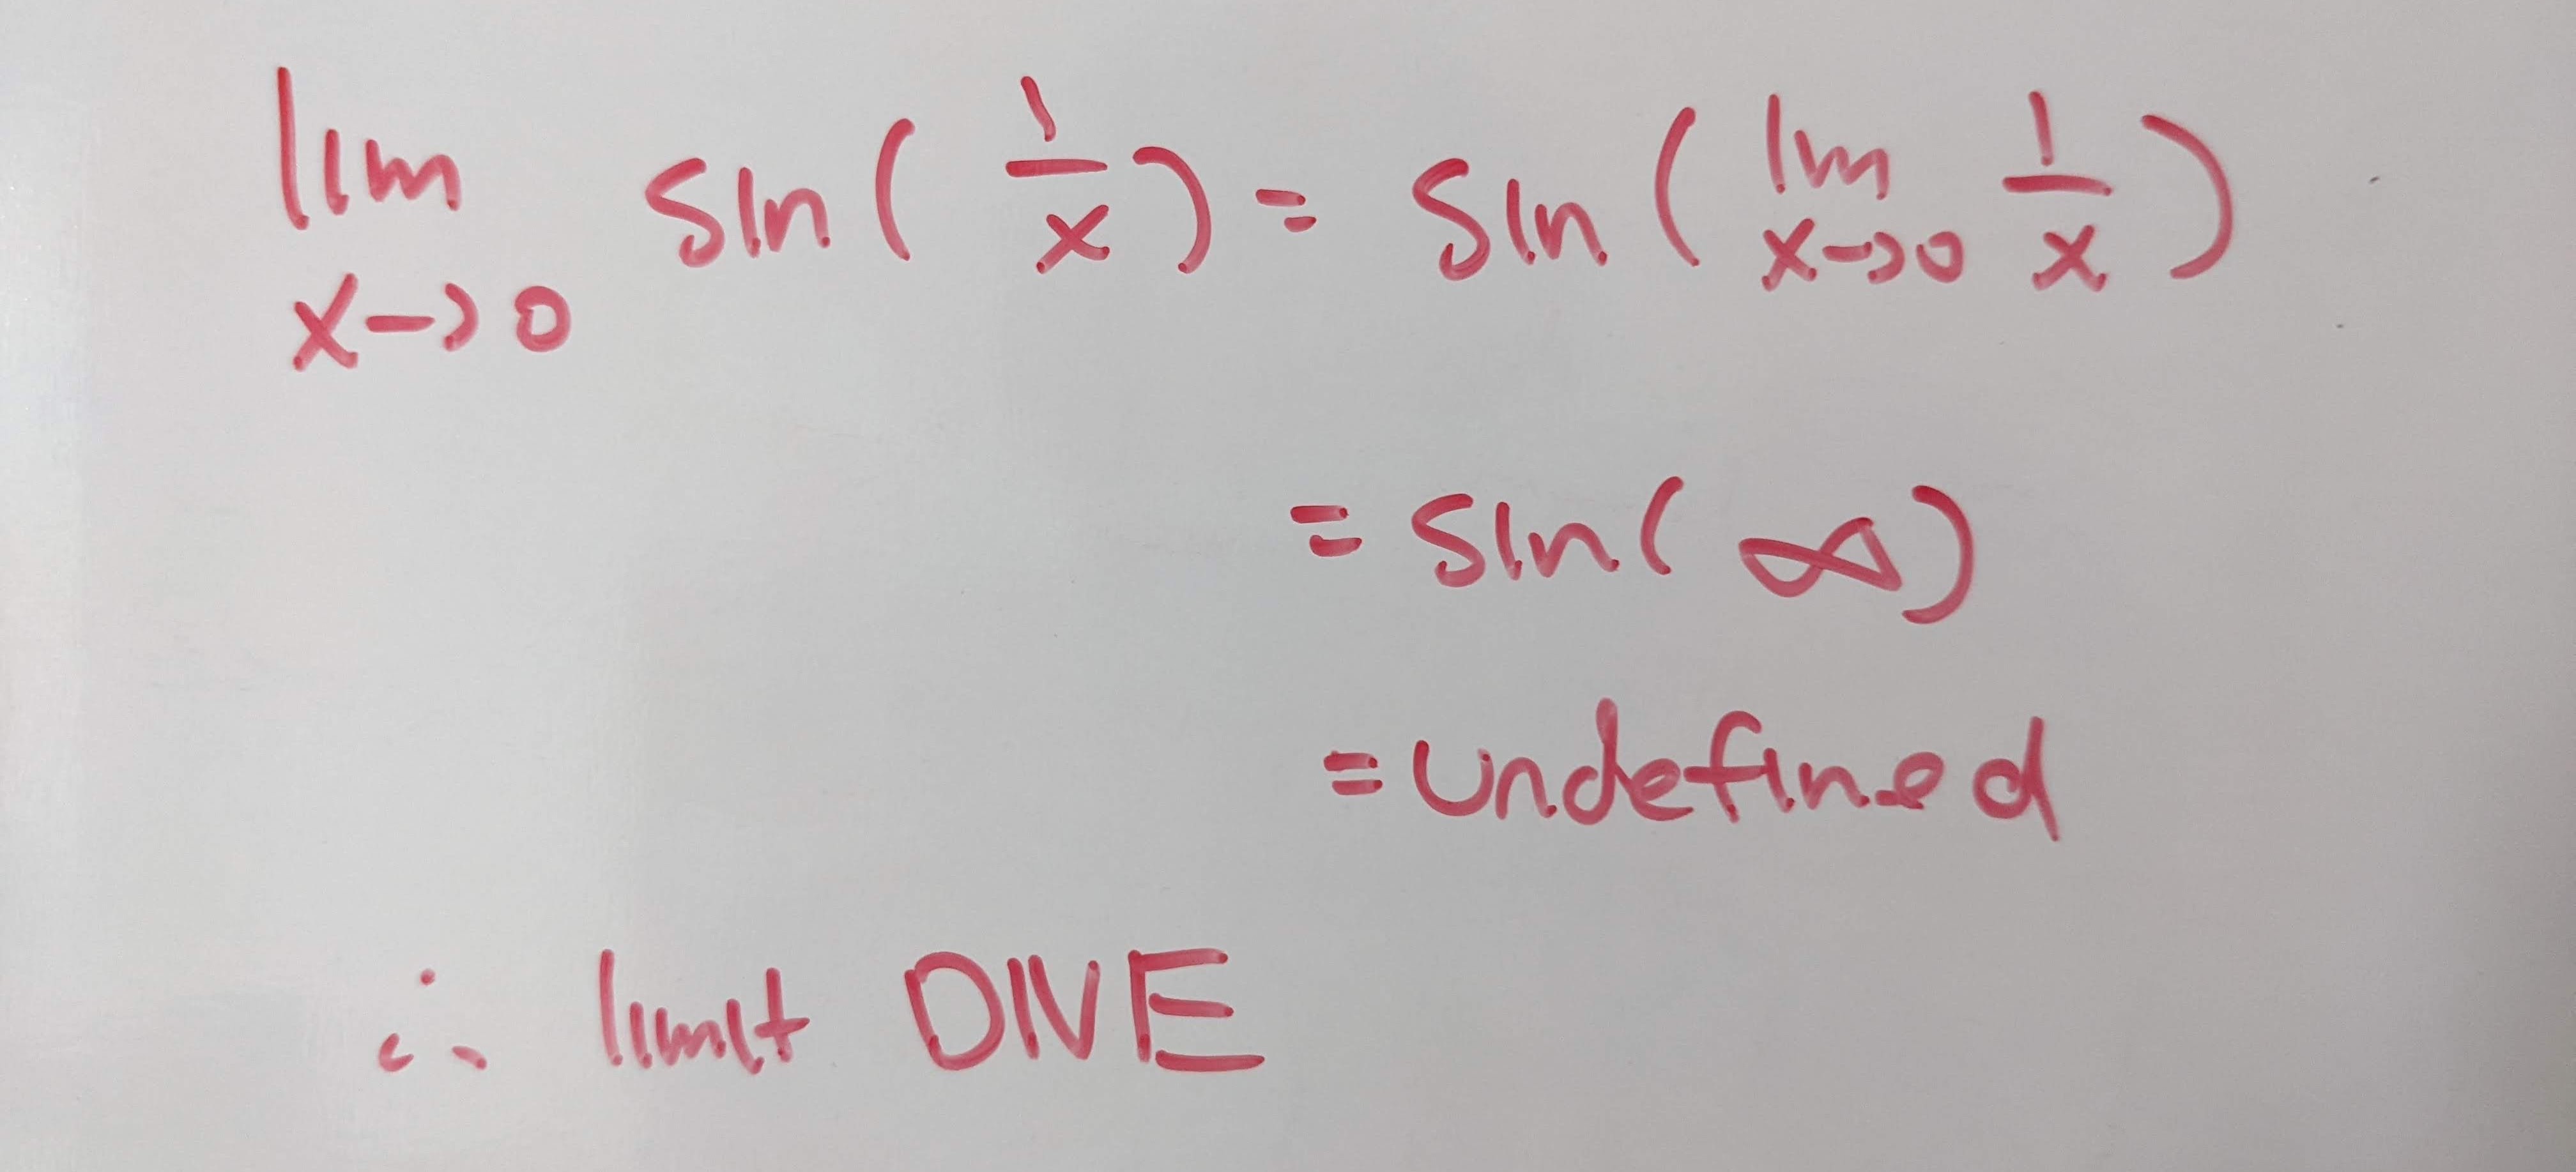 lim x→0 sin(1/x) = sin(lim x→0 1/x)
= sin(∞)
= undefined
∴ limit DNE